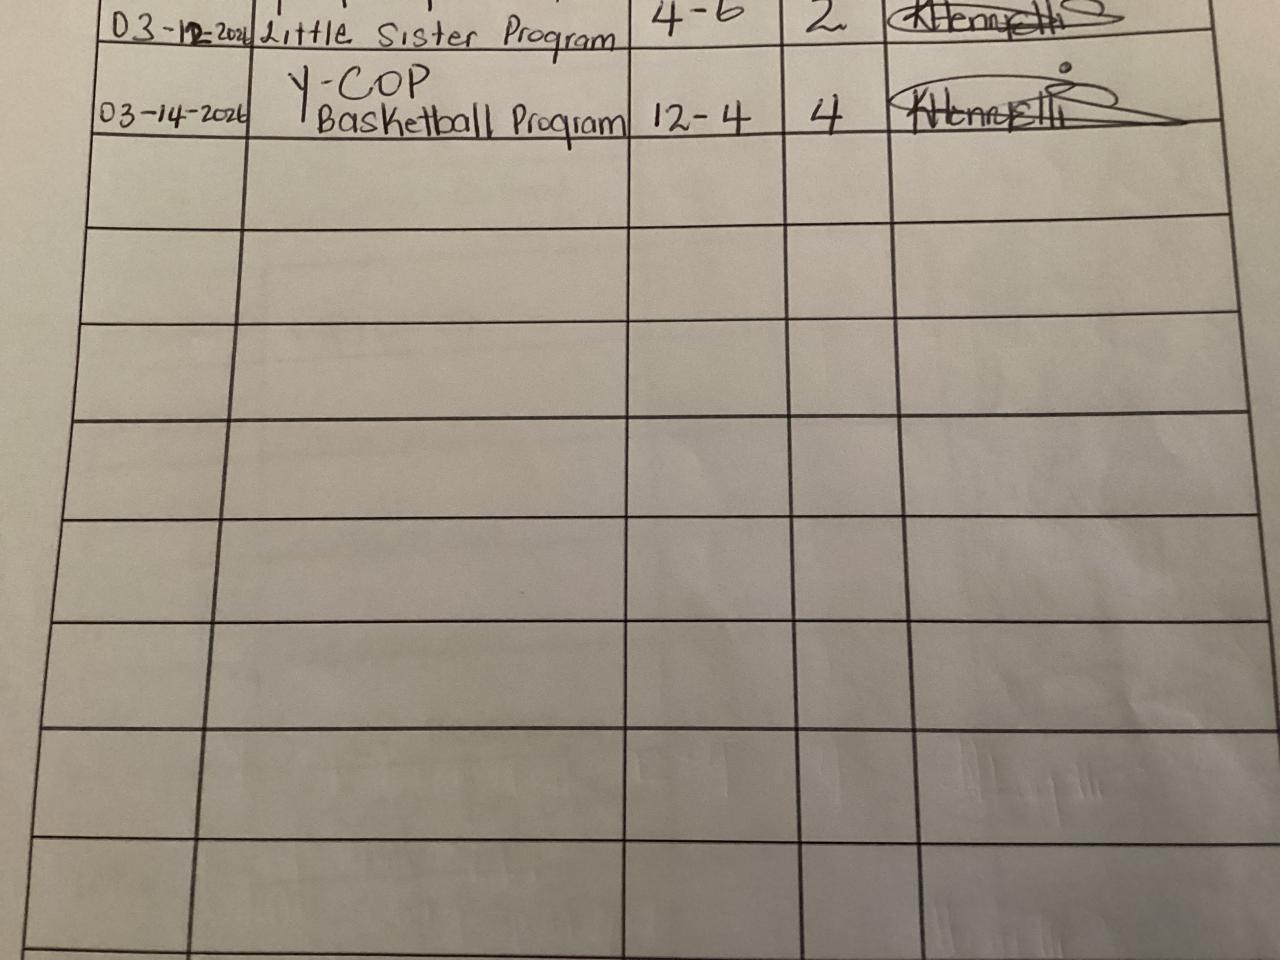 03-12-2026 Little Sister Program 4-6 2
Y-COP
03-14-2026 Basketball Program 12-4 4